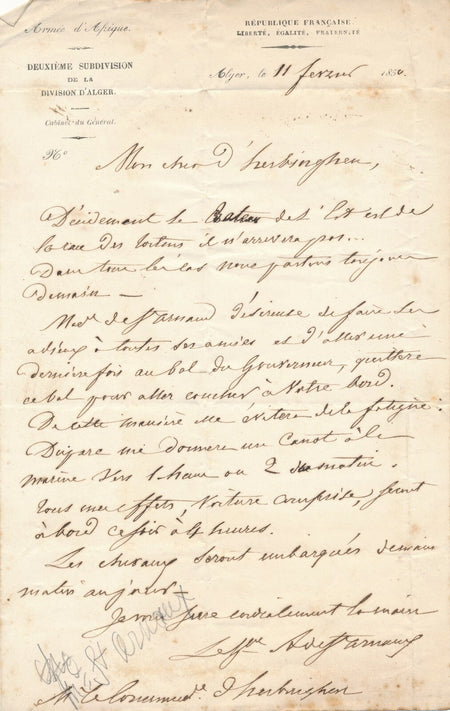 Armée d'Afrique.
DEUXIÈME SUBDIVISION
DE LA
DIVISION D'ALGER.
Cabinet du Général.
No
RÉPUBLIQUE FRANÇAISE.
LIBERTÉ, ÉGALITÉ, FRATERNITÉ
Alger, le 11 fevrier 1850.
Mon cher d'herbinghen,
Décidement le Bateau de l'Est est de
la des il n'arrivera pas...
Dans tous les cas nous partons toujours
Demain —
Mad. de St Arnaud désireuse de faire ses
adieux à toutes ses amies et d'aller une
dernière fois au bal du Gouverneur, quittera
ce bal pour aller coucher à votre bord.
De cette manière elle évitera de la fatigue.
Dupare me donnera un Canot à la
marine vers 1 heure ou 2 du matin.
Tous mes effets, Voiture comprise, seront
à bord ce soir à 4 heures.
Les chevaux seront embarqués demain
matin au jour.
Je vous serre cordialement la main
Le Gal A de St Arnaud
St Arnaux
Mr le Command. d'herbinghen